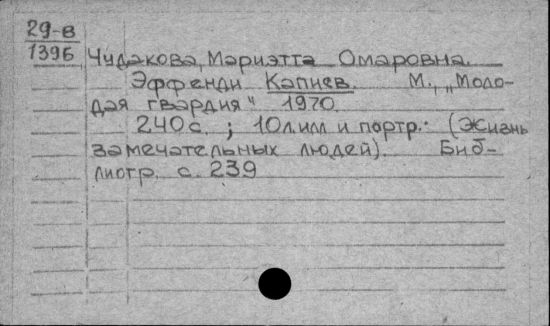 29-в
1396
Чудакова, Мариэтта Омаровна.
Эффенди Капиев. М., „Моло-
дая гвардия" 1970.
240с. ; 10л.илл и портр.: (Жизнь
замечательных людей). Биб-
лиогр. с. 239